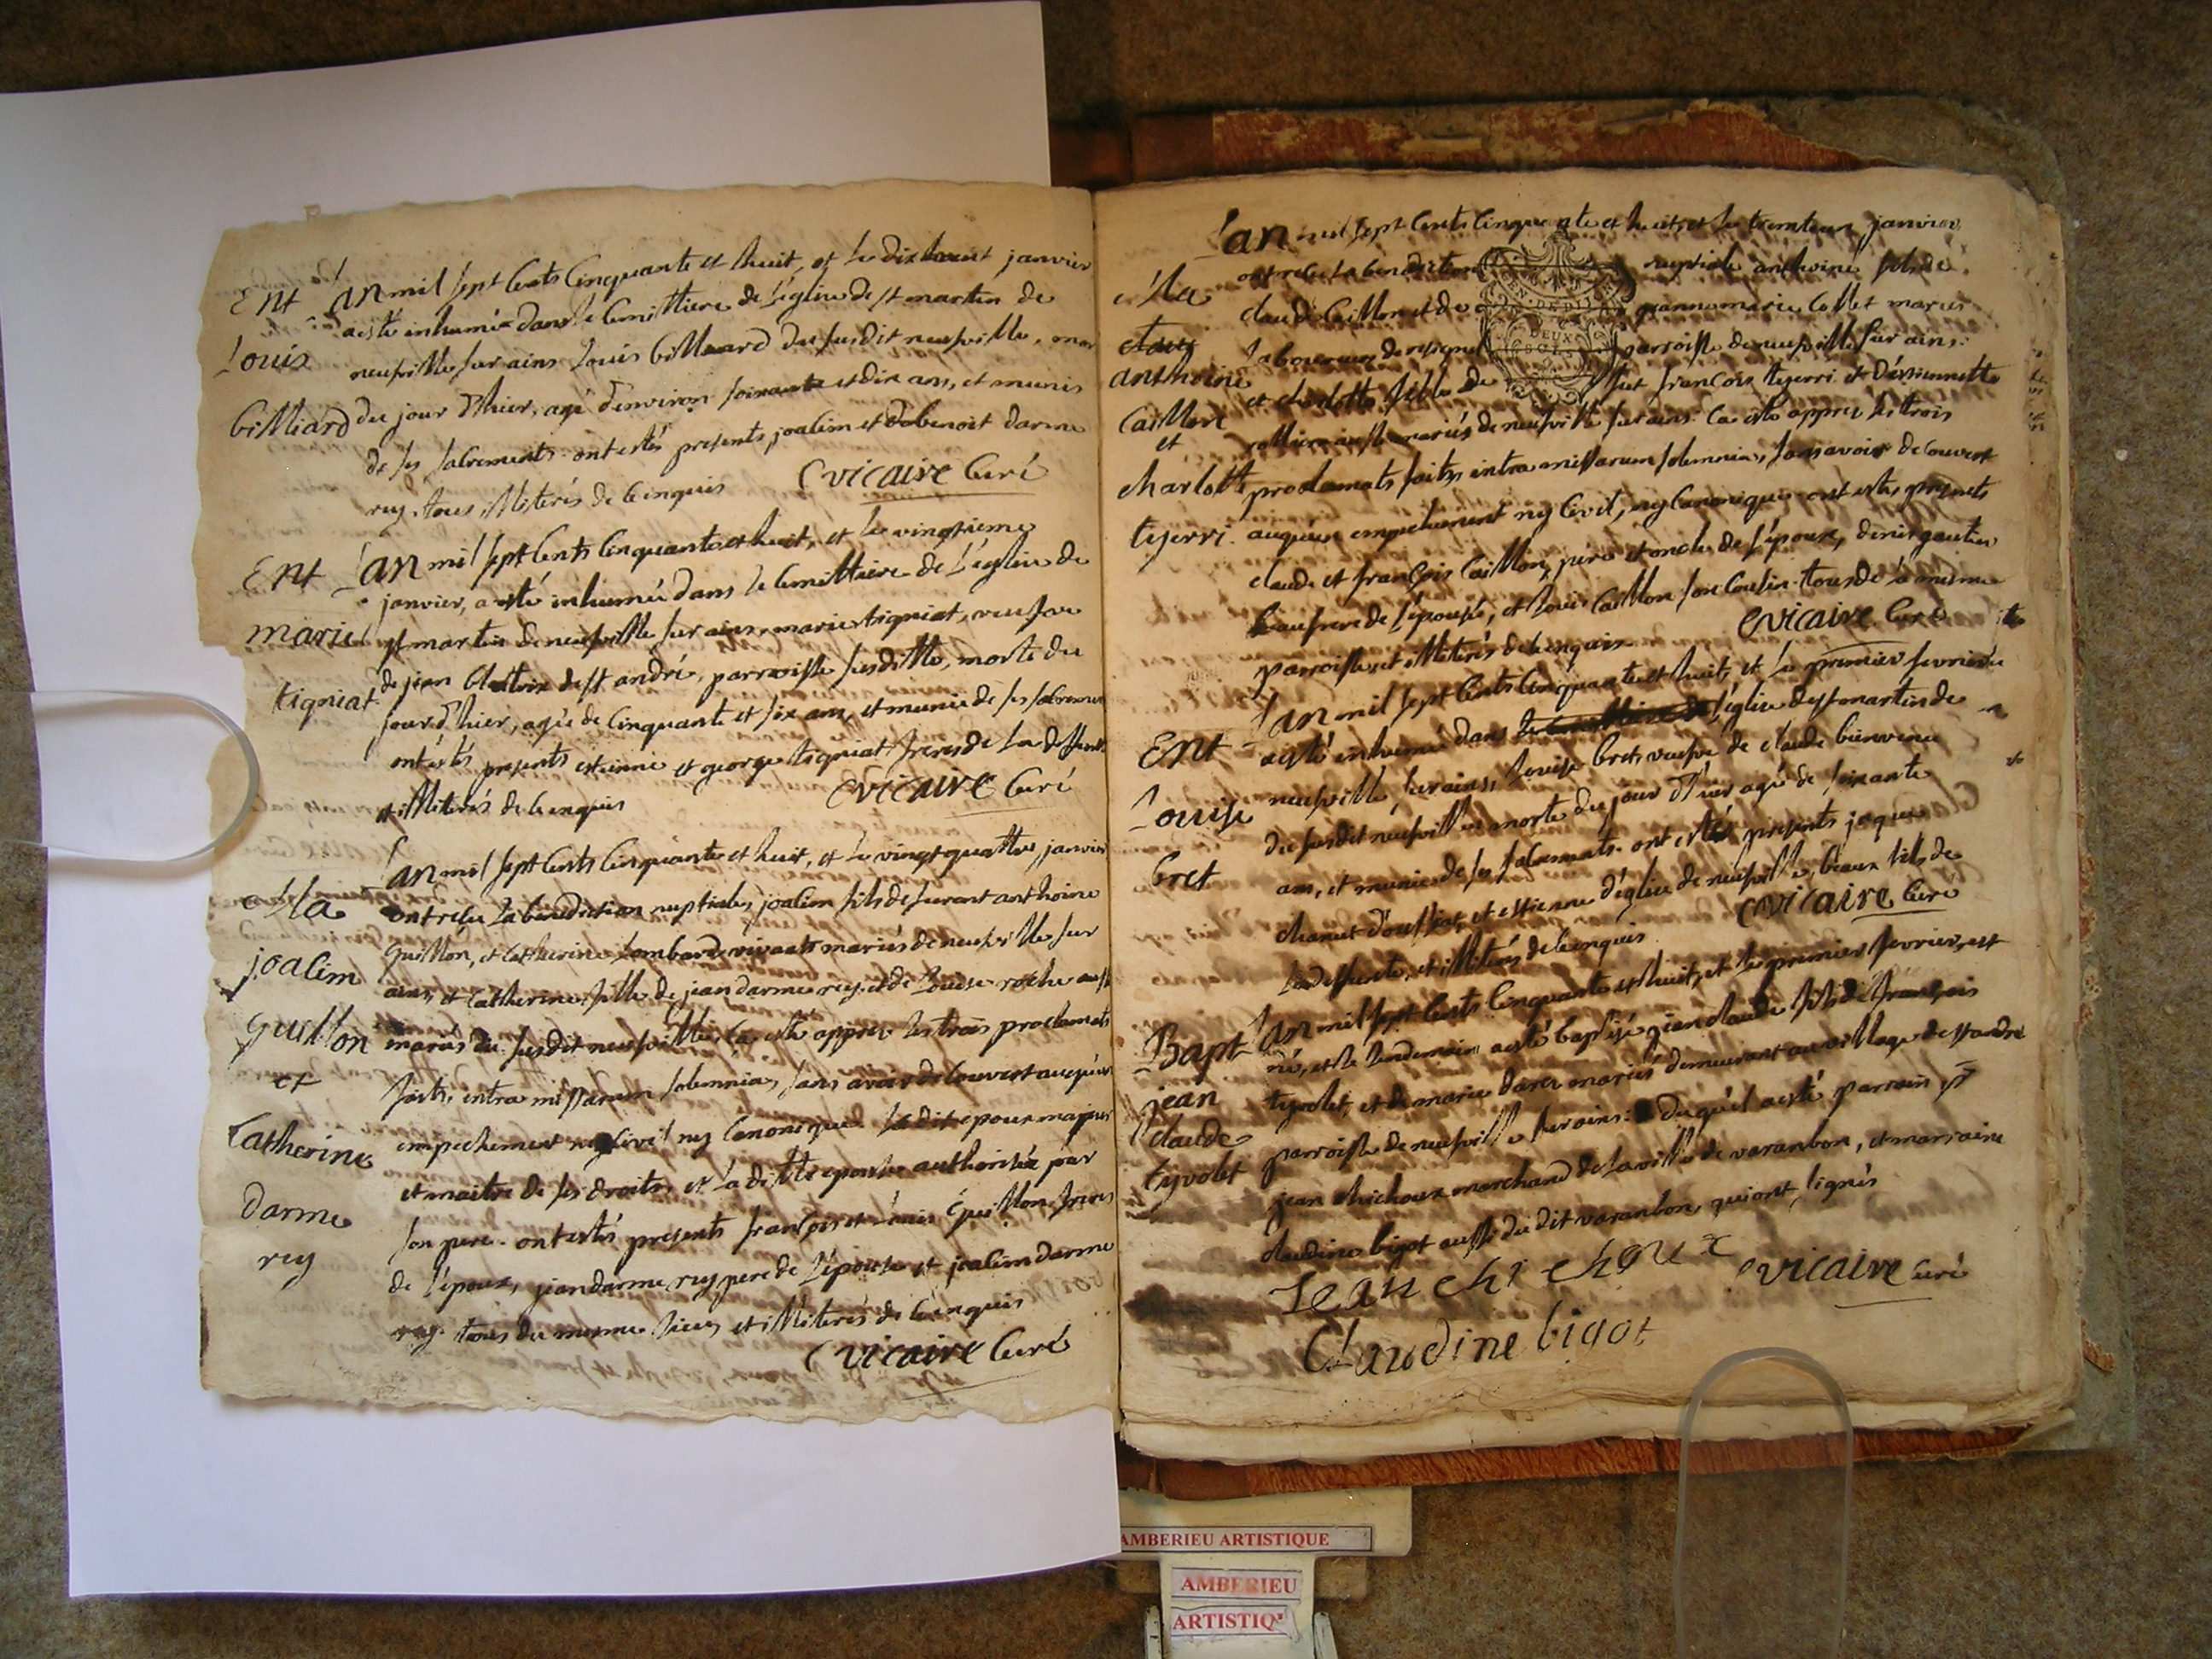 Ent L'an mil sept cents cinquante et huit, et le dixhuit janvier
a esté inhumé dans le cemittiere de l'église de st martin de
Louis neufville sur ains Louis billiard du susdit neufville, mor
billiard du jour d'hier, agé d'environ soixante et dix ans, et munis
de ses sacrements. ont estés presents joacim et benoit darme
rey. tous illiterés de ce enquis Cvicaire Curé
Ent L'an mil sept cents cinquante et huit, et le vingtieme
janvier, a esté inhumée dans le cemittiere de l'église de
marie st martin de neufville sur ains, marie tigniat, veufve
tigniat de jean de st andré, parroisse susditte, morte du
jour d'hier, agée de cinquante et six ans, et munie de ses sacrements
ont estés presents estienne et george tigniat freres de la deffunte
et illiterés de ce enquis Cvicaire Curé
L'an mil sept cents cinquante et huit, et le vingt quattre janvier
Ma ont reçu la benediction nuptiale, joacim fils de furent anthoine
joacim guillon, et catherine Lombard vivants mariés de neufville sur
ains, et catherine fille de jean darme rey et de Louise roche aussi
guillon mariés du susdit neufville, ça esté apprez les trois proclamats
et faits, intra missarum solemnia, sans avoir decouvert auqu'un
Catherine empechement ny civil ny canonique. Le dit epoux majeur
et maitre de ses droits, et la ditte epouse authorisée par
darme son pere. ont estés presents françois et Louis guillon freres
rey de l'epoux, jean darme rey pere de l'epouse et joacim darme
rey. tous du mesme lieu, et illiterés de ce enquis
Cvicaire Curé
L'an mil sept cents cinquante et huit, et le janvier
Ma ont reçu la benediction nuptiale anthoine fils de
claude caillon et de jeanne marie collet mariés
anthoine laboureurs de parroisse de neufville sur ains:
Caillon et charlotte fille de fut françois teyerri et d'estiennette
et aussi mariés de neufville sur ains: ça esté apprez les trois
charlotte proclamats faits, intra missarum solemnia, sans avoir decouvert
teyerri. auqu'un empechement ny civil, ny canonique. ont estés presents
claude et françois caillon, père et oncle de l'époux, denis gautier
beaufrere de l'épouse, et Louis caillon son cousin. tous de la mesme
parroisse, et illiterés de ce enquis Cvicaire Curé
L'an mil sept cents cinquante et huit, et le premier fevrier
Ent a esté inhumée dans l'église de st martin de
Louise neufville, sur ains, Louise bret, veufve de claude bienvenu
du susdit neufville, morte du jour d'hier agée de soixante
bret ans, et munie de ses sacrements. ont estés presents jaques
chanet d'oussiat, et estienne d'église de neufville, beaux fils de
la deffunte, et illiterés de ce enquis Cvicaire Curé
Bapt L'an mil sept cents cinquante et huit, et le premier fevrier, est
né, et le lendemain a esté baptisé jean claude fils de françois
jean tyvolet, et de marie mariés demeurant au village de st andré
claude parroisse de neufville sur ains: duquel a esté parrain sr
tyvolet jean chichoux marchand de la ville de varanbon, et marraine
claudine bigot aussi du dit varanbon, qui ont signés
Jean chichoux Cvicaire Curé
Claudine bigot
GEN
DEUX
SOLS
AMBERIEU ARTISTIQUE
AMBERIEU
ARTISTIQ